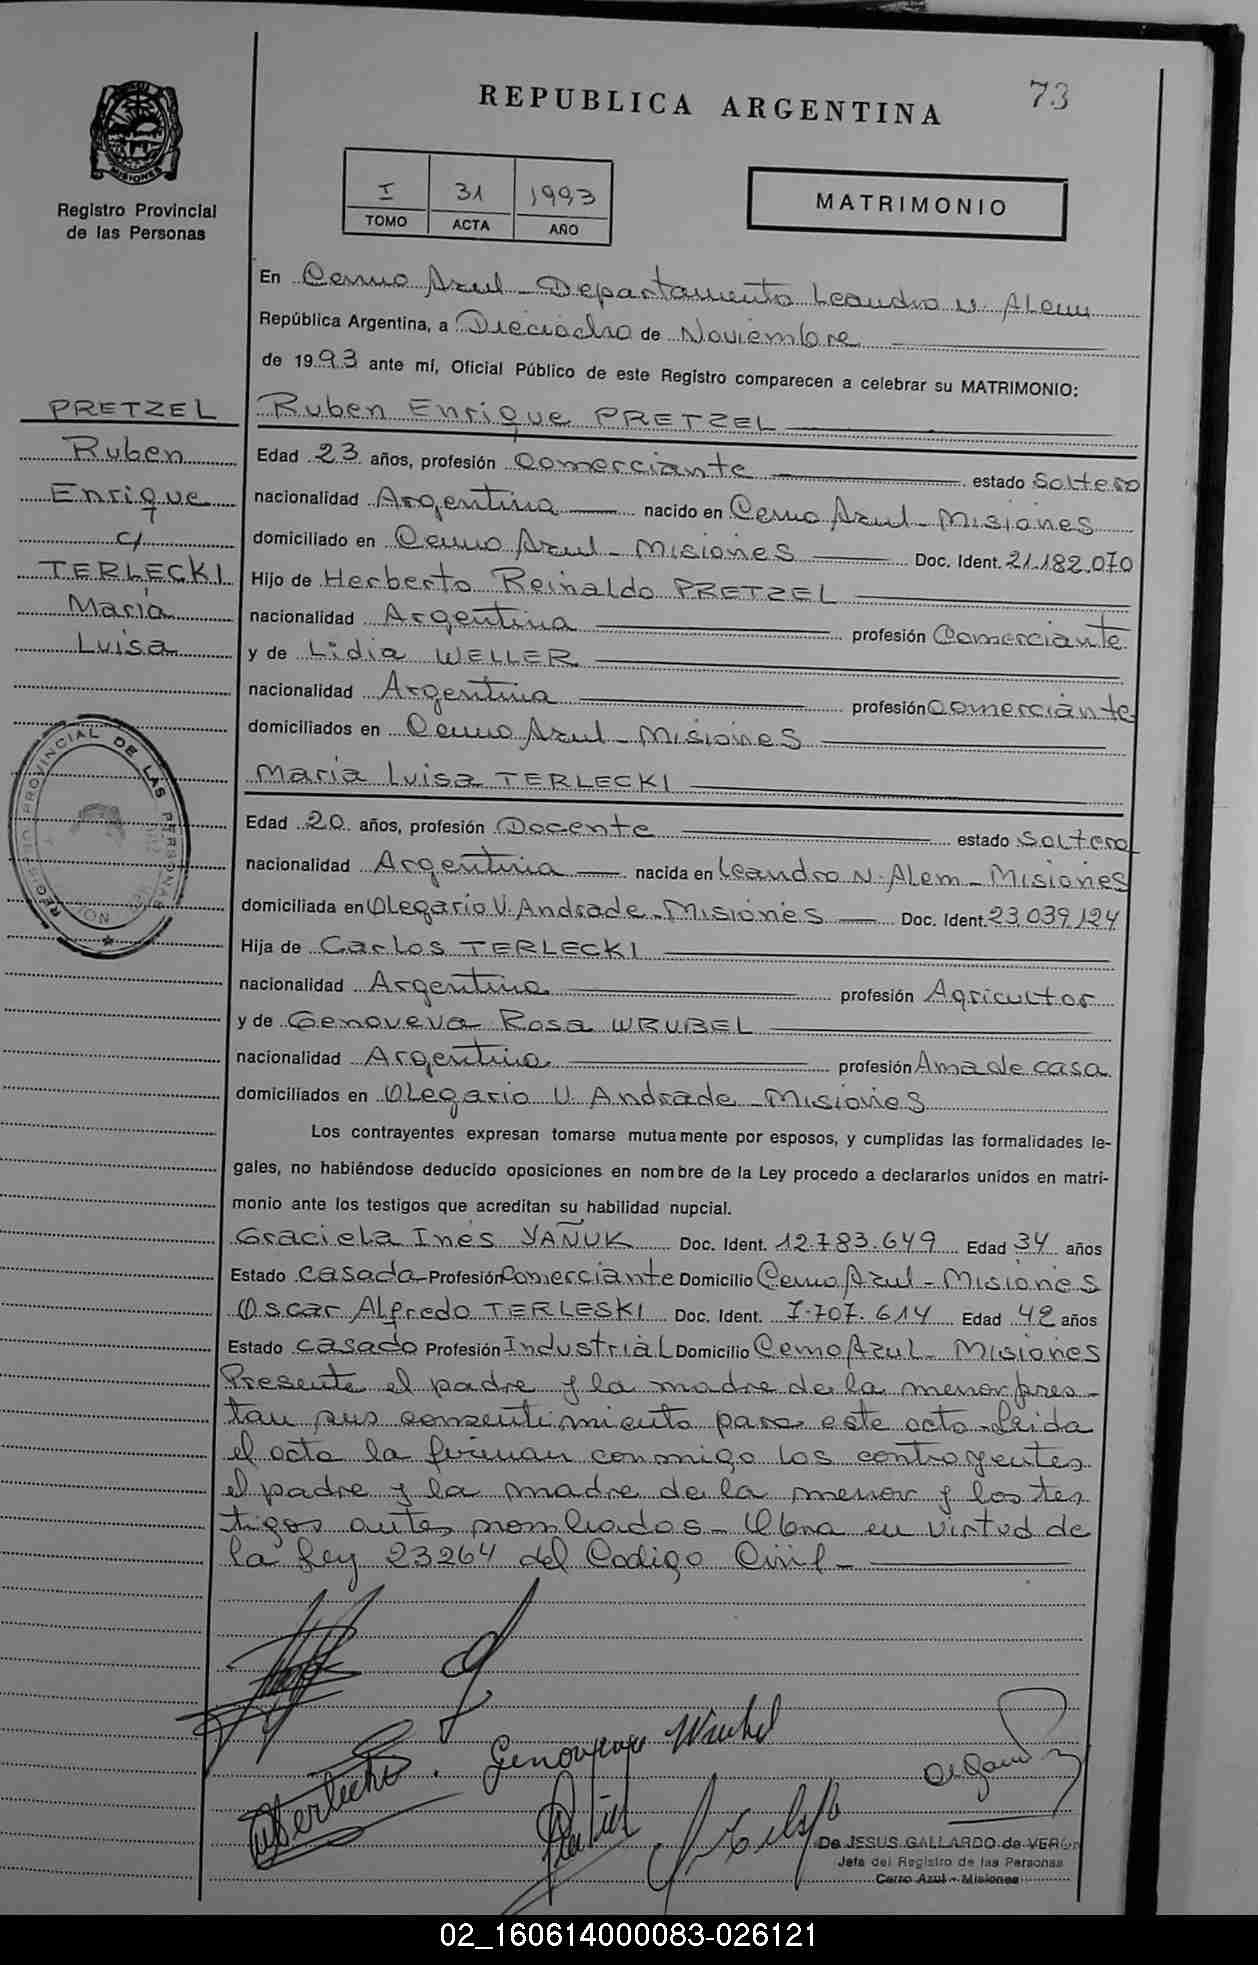 REPUBLICA ARGENTINA
73
MISIONES
Registro Provincial
de las Personas
I 31 1993
TOMO ACTA AÑO
MATRIMONIO
En Cerro Azul - Departamento Leandro N. Alem
República Argentina, a Dieciocho de Noviembre
de 1993 ante mí, Oficial Público de este Registro comparecen a celebrar su MATRIMONIO:
PRETZEL
Ruben
Enrique
c/
TERLECKI
María
Luisa
REGISTRO PROVINCIAL DE LAS PERSONAS
Ruben Enrique PRETZEL
Edad 23 años, profesión Comerciante estado Soltero
nacionalidad Argentina nacido en Cerro Azul - Misiones
domiciliado en Cerro Azul - Misiones Doc. Ident. 21.182.070
Hijo de Herberto Reinaldo PRETZEL
nacionalidad Argentina profesión Comerciante
y de Lidia WELLER
nacionalidad Argentina profesión Comerciante
domiciliados en Cerro Azul - Misiones
María Luisa TERLECKI
Edad 20 años, profesión Docente estado Soltera
nacionalidad Argentina nacida en Leandro N. Alem - Misiones
domiciliada en Olegario V. Andrade - Misiones Doc. Ident. 23.039.124
Hija de Carlos TERLECKI
nacionalidad Argentina profesión Agricultor
y de Genoveva Rosa WRUBEL
nacionalidad Argentina profesión Ama de casa
domiciliados en Olegario V. Andrade - Misiones
Los contrayentes expresan tomarse mutuamente por esposos, y cumplidas las formalidades le-
gales, no habiéndose deducido oposiciones en nombre de la Ley procedo a declararlos unidos en matri-
monio ante los testigos que acreditan su habilidad nupcial.
Graciela Inés YAÑUK Doc. Ident. 12.783.649 Edad 34 años
Estado casada Profesión Comerciante Domicilio Cerro Azul - Misiones
Oscar Alfredo TERLESKI Doc. Ident. 7.707.614 Edad 42 años
Estado casado Profesión Industrial Domicilio Cerro Azul - Misiones
Presente el padre y la madre de la menor pres-
tan sus consentimiento para este acto. Leida
el acta la firman conmigo los contrayentes
el padre y la madre de la menor y los tes
tigos antes nombrados - Obra en virtud de
la Ley 23264 del Codigo Civil -
Genoveva Wrubel
De JESUS GALLARDO de VERON
Jefa del Registro de las Personas
Cerro Azul - Misiones
02_160614000083-026121